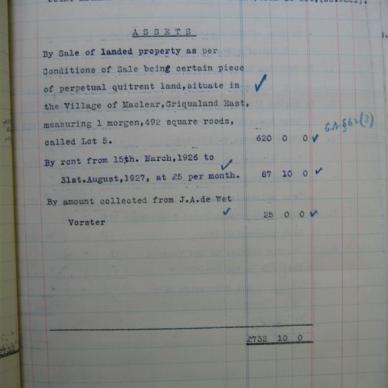 ASSETS
By Sale of landed property as per
Conditions of Sale being certain piece
of perpetual quitrent land,situate in
the Village of Maclear,Griqualand East,
measuring 1 morgen,492 square roods,
called Lot 5. 620 0 0
By rent from 15th. March,1926 to
31st.August,1927, at £5 per month. 87 10 0
By amount collected from J.A.de Wet
Vorster 25 0 0
£732 10 0